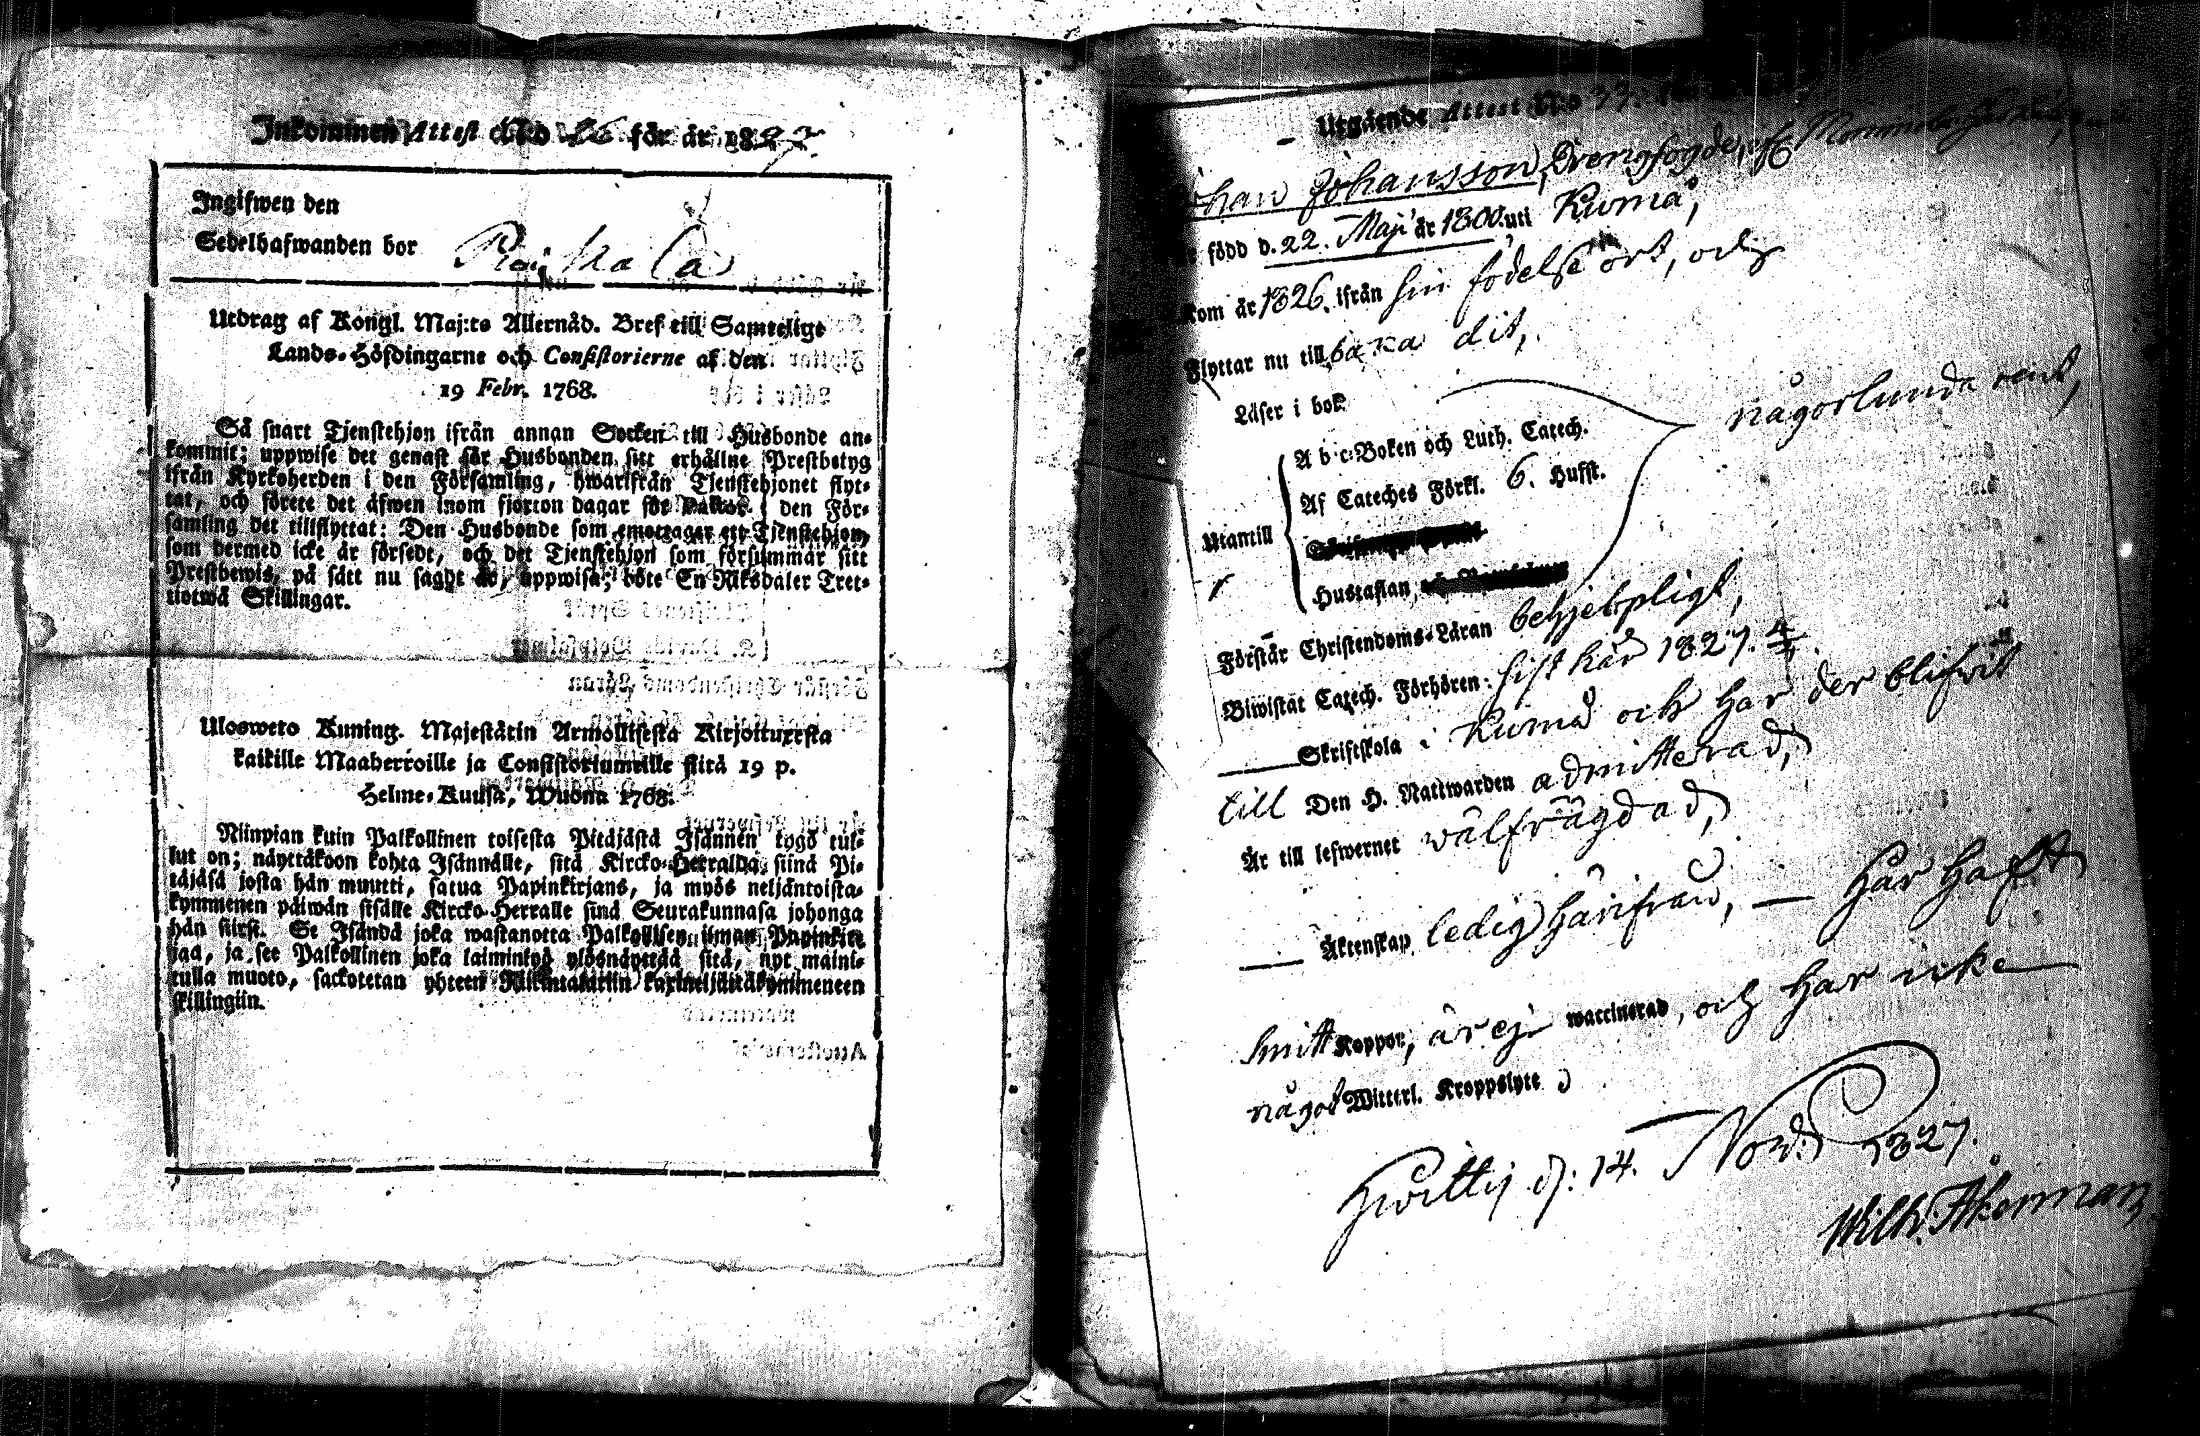 Inkommen Attest No 26 för år 1827
Ingifwen den
Sedelhafwanden bor Raikala
Utdrag af Kongl. Maj:ts Allernåd. Bref till Samtelige
Lands-Höfdingarne och Consistorierne af den
19 Febr. 1768.
Så snart Tjenstehjon ifrån annan Socken till Husbonde an-
kommit; uppwise det genast för Husbonden sitt erhållne Prestbetyg
ifrån Kyrkoherden i den Församling, hwarifrån Tjenstehjonet flyt-
tat, och förete det äfwen inom fjorton dagar för Pastor i den För-
samling det tillflyttat: Den Husbonde som emottager ett Tjenstehjon,
som dermed icke är försedt, och det Tjenstehjon som försummar sitt
Prestbewis, på sätt nu sagdt är, uppwisa; böte En Riksdaler Tret-
tiotwå Skillingar.
Ulosweto Kuning. Majestätin Armollisesta Kirjoituxesta
kaikille Maaherroille ja Consistoriumeille siitä 19 p.
Helme-Kuusa, Wuona 1768.
Niinpian kuin Palkollinen toisesta Pitäjästä Isännen tygö tul-
lut on; näyttäkoon kohta Isännälle, sitä Kircko-Herralda, siinä Pi-
täjäsä josta hän muutti, saatua Papinkirjans, ja myös neljäntoista-
kymmenen päiwän sisälle Kircko-Herralle siinä Seurakunnasa johonga
hän siirsi. Se Isändä joka wastanotta Palkollisen ilman Papinkir-
jaa, ja se Palkollinen joka laiminlyö ylösnäyttää sitä, nyt maini-
tulla muoto, sackotetan yhteen Riksintaalariin kaxineljättäkymmeneen
skillingiin.
Utgående Attest No 33.
Johan Johansson, Drengfogde,
född d. 22. Maji år 1800. uti Kumå,
Kom år 1826. ifrån sin födelse ort, och
Flyttar nu till baka dit,
Läser i bok någorlunda rent,
A b c-Boken och Luth. Catech.
Af Cateches Förkl. 6. Hufst.
Utantill
Hustaflan,
Förstår Christendoms-Läran behjelpligt,
Biwistat Catech. Förhören: sist här 1827.
Skriftskola i Kumå och har der blifwit
till Den H. Nattwarden admitterad,
Är till lefwernet wälfrägdad,
Äktenskap ledig härifrån, — Har haft
Smitt Koppor, är ej waccinerad, och har icke
något Witterl. Kroppslyte
Hwittis d: 14. Nov. 1827.
Wilh. Åkerman